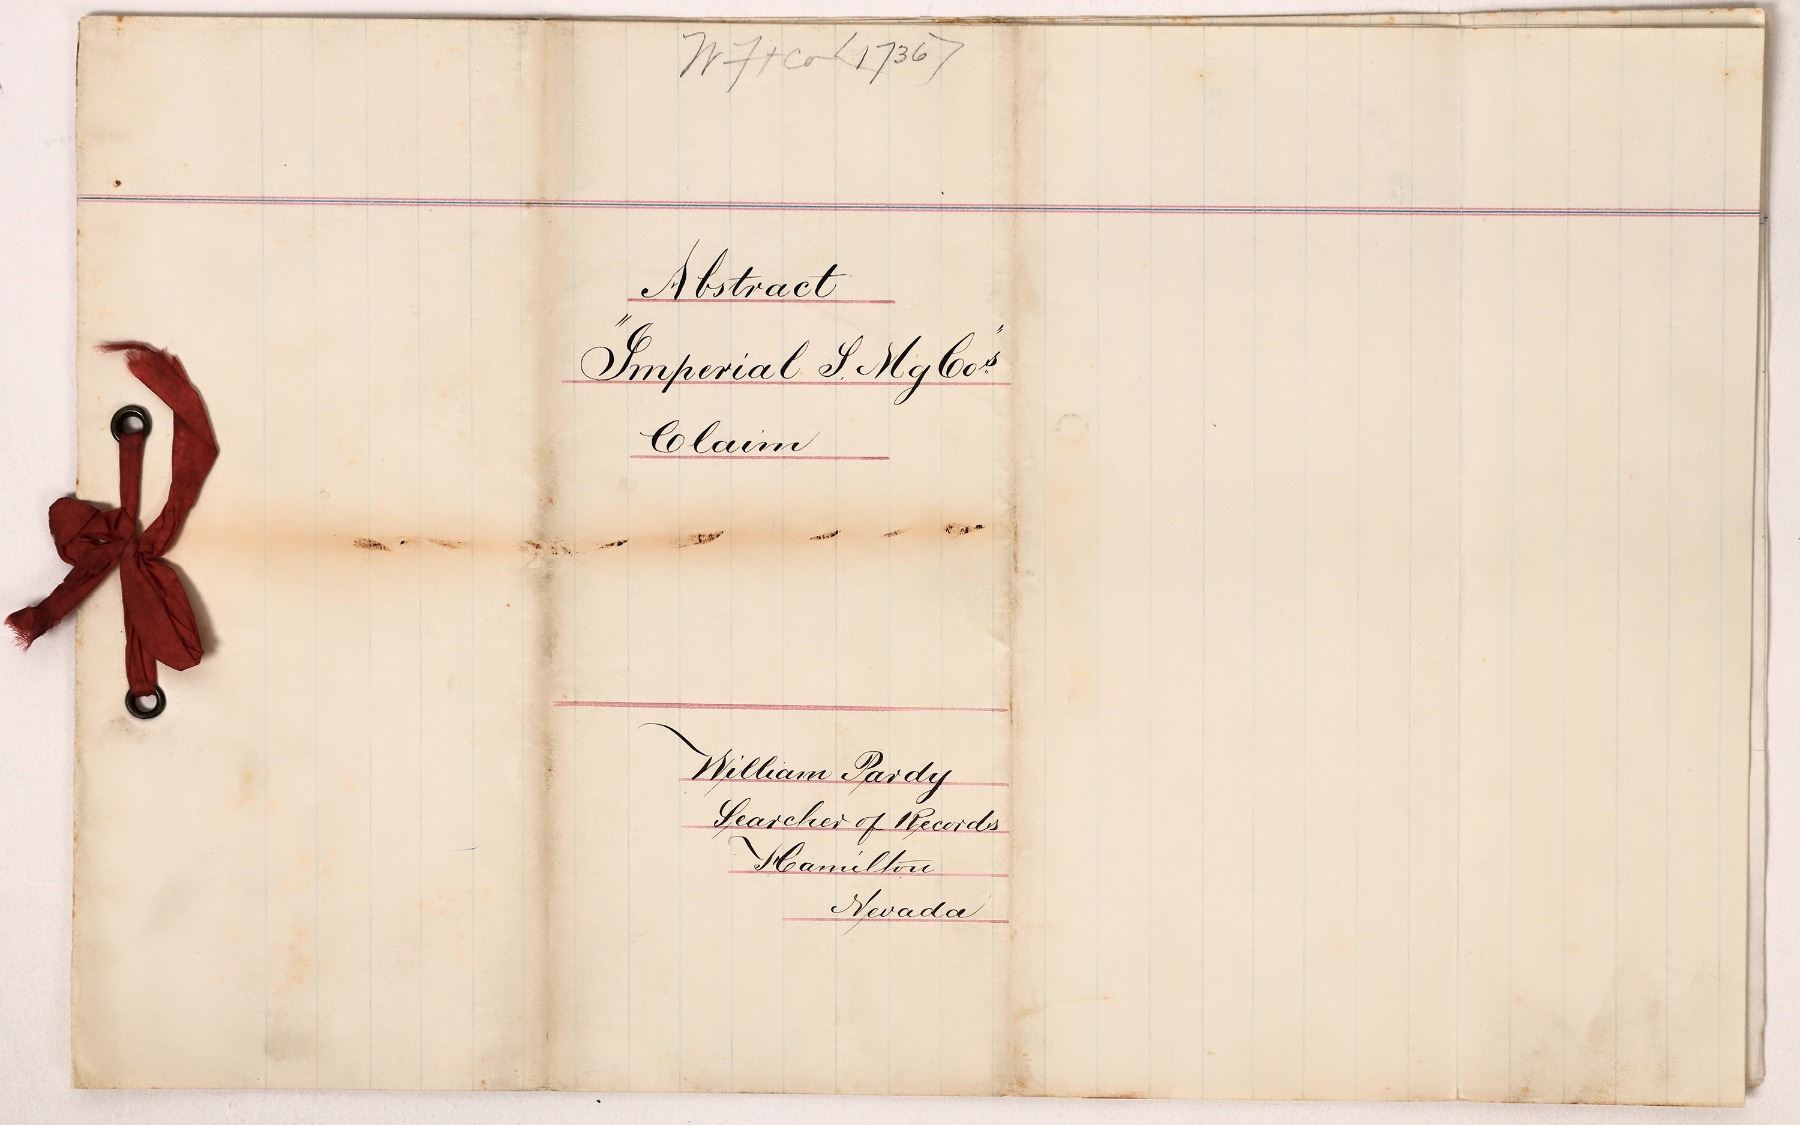 W F + Co <1736>
Abstract
"Imperial S. M'g Co's"
Claim
William Pardy
Searcher of Records
Hamilton
Nevada